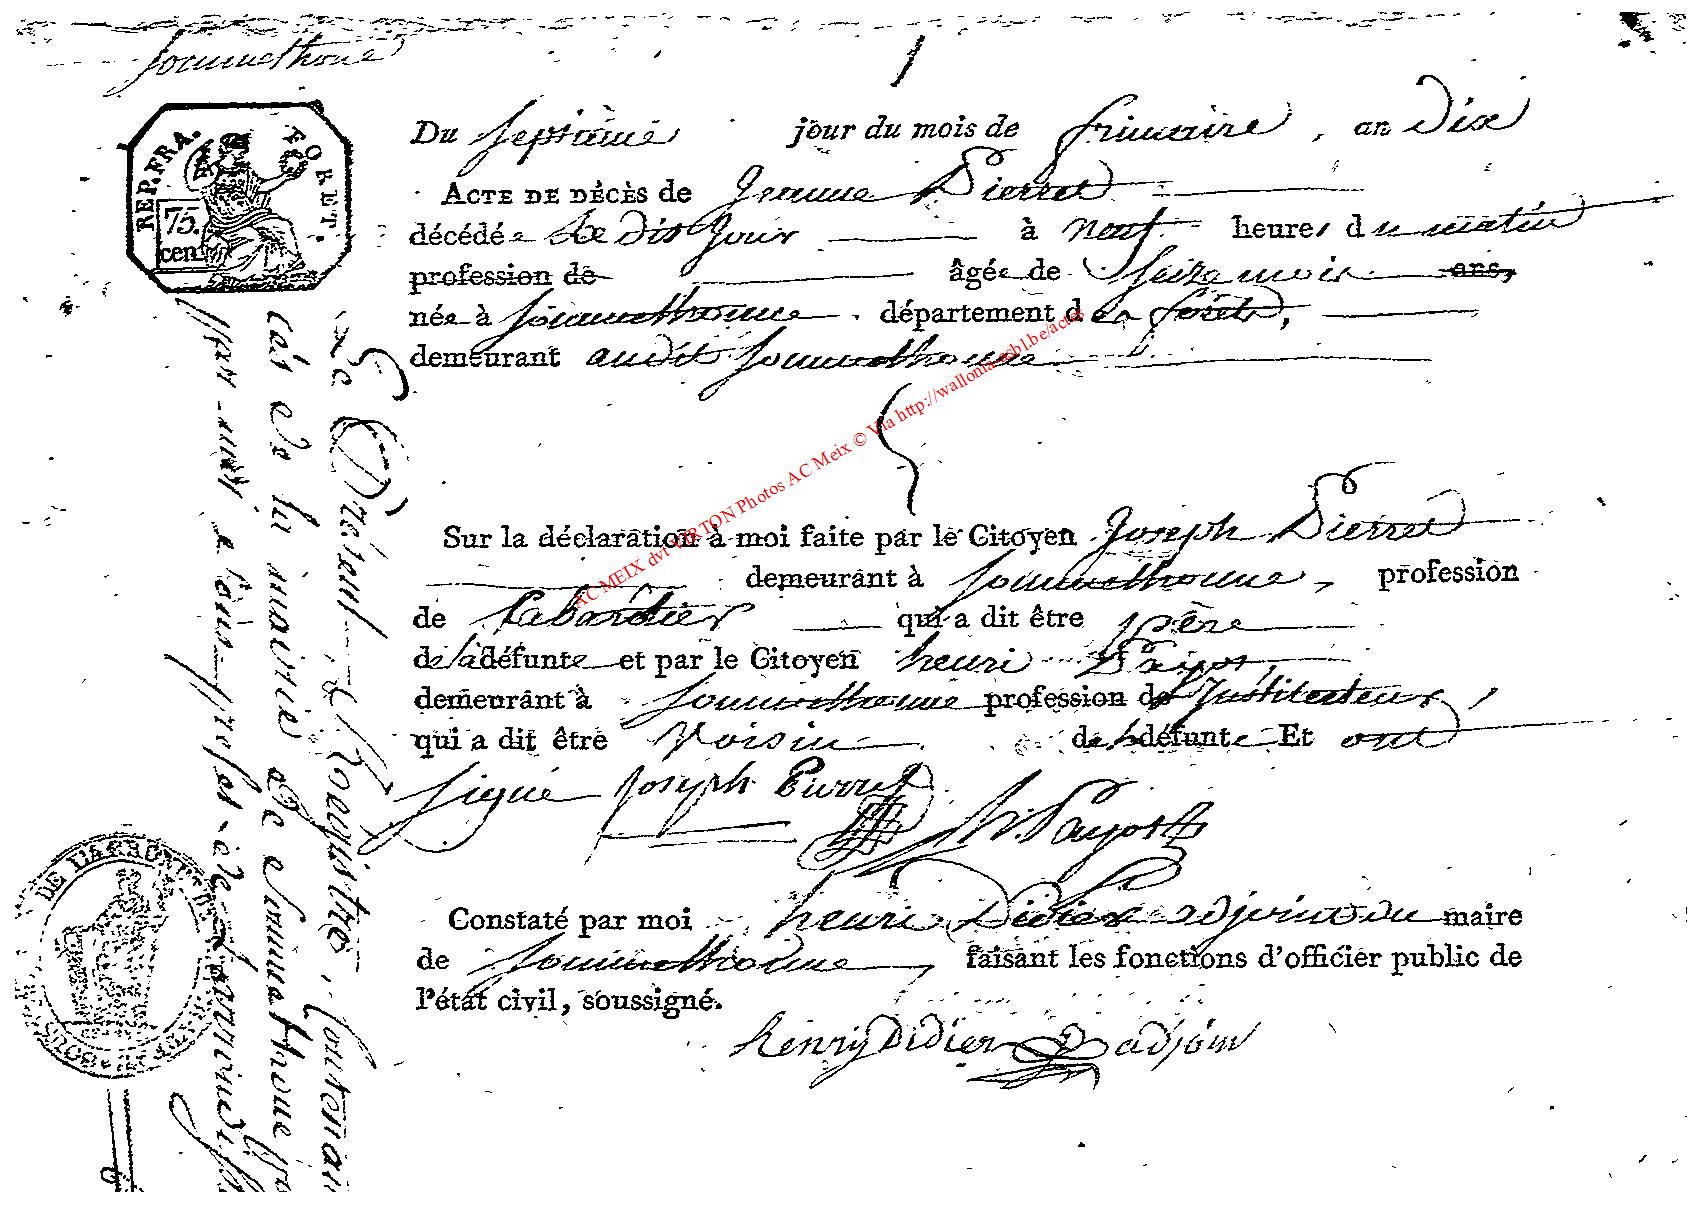 Sommethone
1
REP. FRA. FORET.
75.
cen
Du septiéme jour du mois de frimaire, an Dix
ACTE DE DÉCÈS de Jeanne Pierret
décédée Le dit Jour à neuf heures du matin
profession de âgée de Seize mois ans,
née à Sommethonne. département des forêts,
demeurant audit Sommethonne
Sur la déclaration à moi faite par le Citoyen Joseph Pierret
demeurant à Sommethonne, profession
de Labourier qui a dit être père
de la défunte et par le Citoyen henri Payot,
demeurant à Sommethonne profession de Instituteur,
qui a dit être Voisin de la défunte Et ont
signé Joseph Pierret
h. Payot
Constaté par moi henri Didier adjoint du maire
de Sommethonne, faisant les fonctions d'officier public de
l'état civil, soussigné.
henry Didier adjoin
Le Présent Registre, Contenan
de la mairie de Sommethone
par nous
DE L'ARRON
AC MEIX dvt VIRTON Photos AC Meix © Via http://wallonia-asbl.be/actes